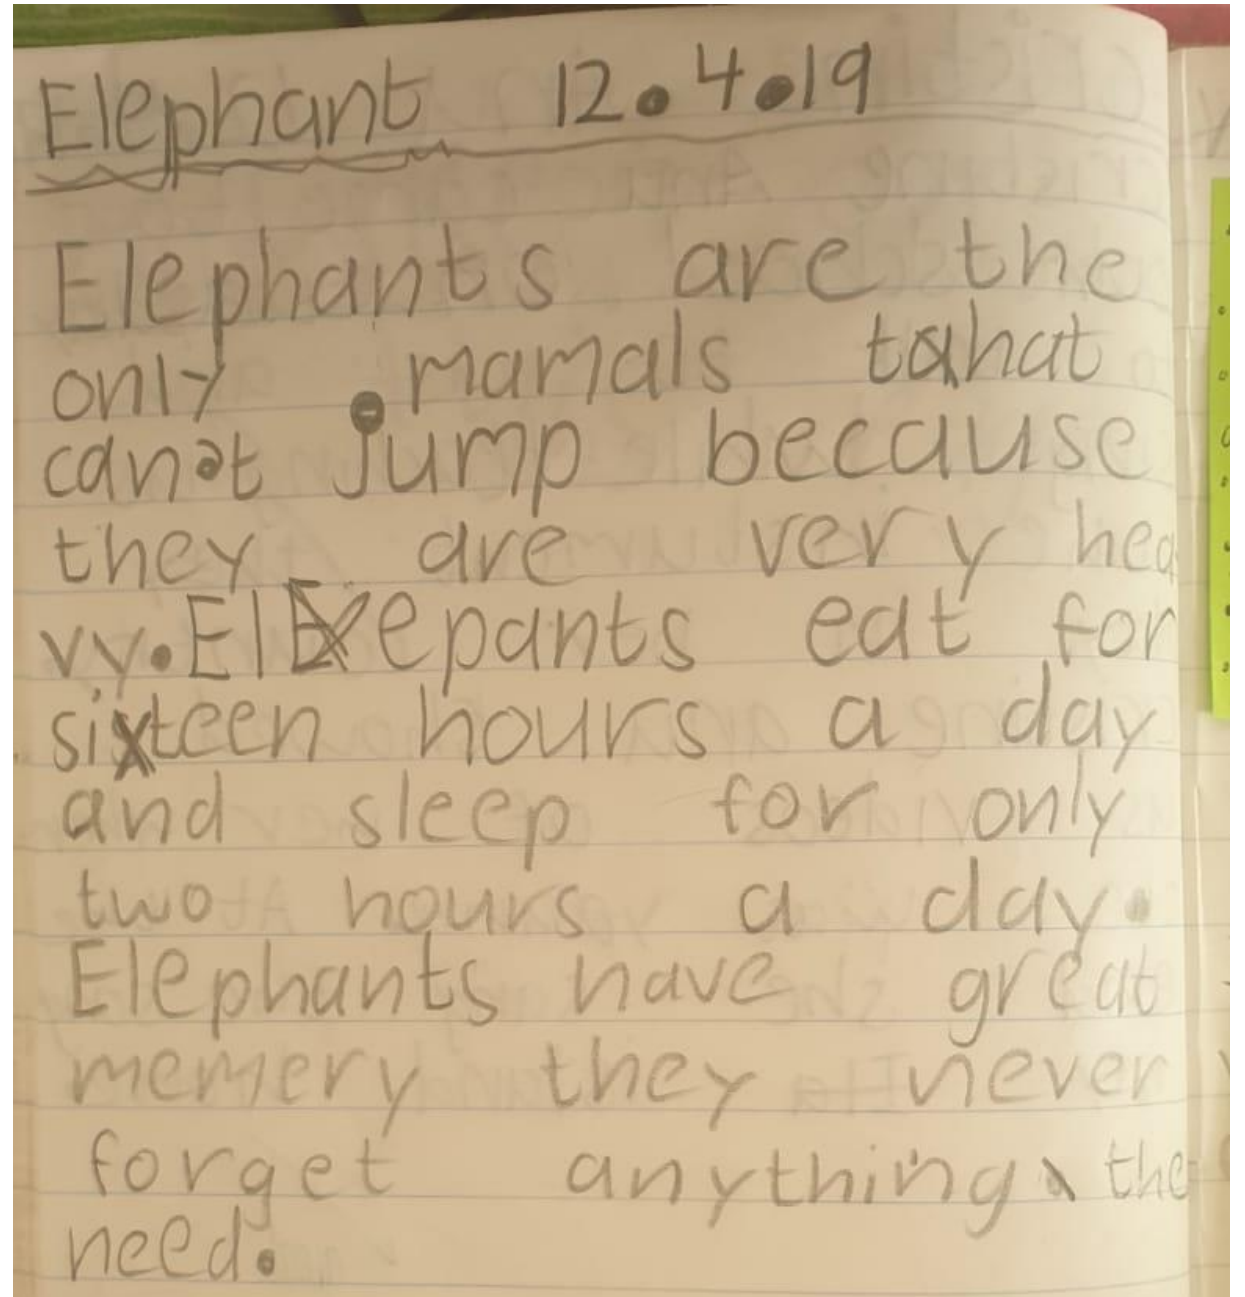 Elephant 12.4.19
Elephants are the
only mamals tahat
canot jump because
they are very hea
vy. Elepants eat for
sixteen hours a day
and sleep for only
two hours a day.
Elephants have great
memery they never
forget anything the
need.